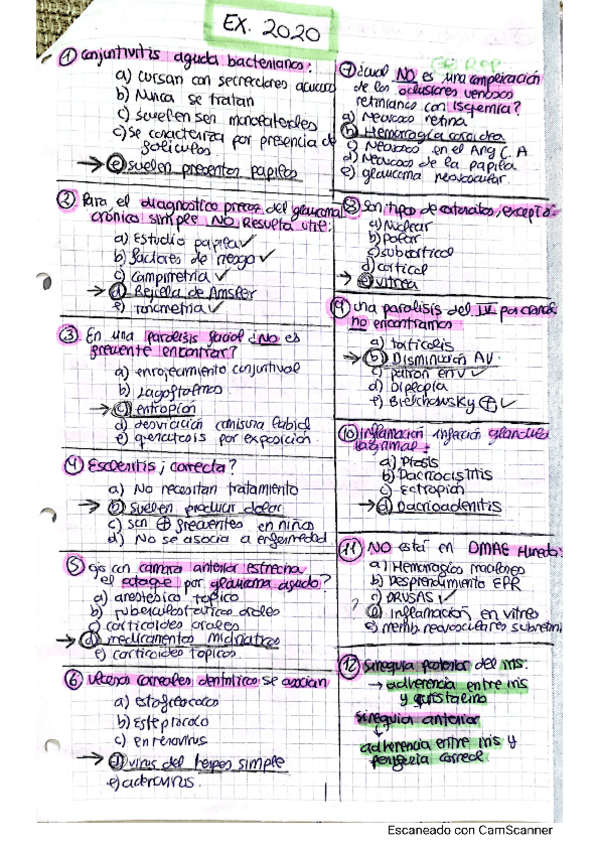 EX. 2020
① Conjuntivitis aguda bacteriana:
a) cursan con secreciones acuosa
b) Nunca se tratan
c) suelen ser monolaterales
c) se caracteriza por presencia de
folículos
→ e) suelen presentar papilas
② Para el diagnostico precoz del glaucoma
crónico simple NO Resulta util:
a) Estudio papila ✓
b) factores de riesgo ✓
c) campimetria ✓
→ d) Rejilla de Amsler
e) tonometria ✓
③ En una paralisis facial ¿NO es
frecuente encontrar?
a) enrojecimiento conjuntival
b) Lagoftalmos
→ c) entropión
d) desviación comisura labial
e) queratosis por exposición
④ Escleritis, correcta?
a) No necesitan tratamiento
→ b) suelen producir dolor
c) son ⊕ frecuentes en niños
d) No se asocia a enfermedad
⑤ ojo con camara anterior estrecha
el ataque por glaucoma agudo?
a) anestesico topico
b) tuberculostaticos orales
c) corticoides orales
→ d) medicamentos midriaticos
e) corticoides topicos
⑥ Ulceras corneales dentriticas se asocian
a) estafilococo
b) Esteptococo
c) enterovirus
→ d) virus del herpes simple
e) adenovirus.
⑦ ¿cual NO es una complicación
de las oclusiones venosas
retinianas con Isquemia?
a) Neovasos retina
b) Hemorragia coroidea
c) Neovasos en el Ang C.A
d) Neovasos de la papila
e) glaucoma neovascular.
⑧ Son tipos de cataratas, excepto:
a) Nuclear
b) Polar
c) subcortical
d) cortical
→ e) vitrea
⑨ una paralisis del IV par craneal
no encontramos
a) torticolis
→ b) Disminución AV
c) patron en V ✓
d) diplopia
e) Bielchowsky ⊕ ✓
⑩ Inflamación infección glandula
lagrimal:
a) Ptosis
b) Dacriocistitis
c) Ectropión
→ d) Dacrioadenitis
⑪ NO está en DMAE Humeda:
a) Hemorragias maculares
b) Desprendimiento EPR
c) DRUSAS ✓
? d) Inflamación en vitreo
e) memb. neovasculares subretini
⑫ sinequia posterior del iris:
→ adherencia entre iris
y cristalino
sinequia anterior
↓
adherencia entre iris y
periferia corneal
Escaneado con CamScanner